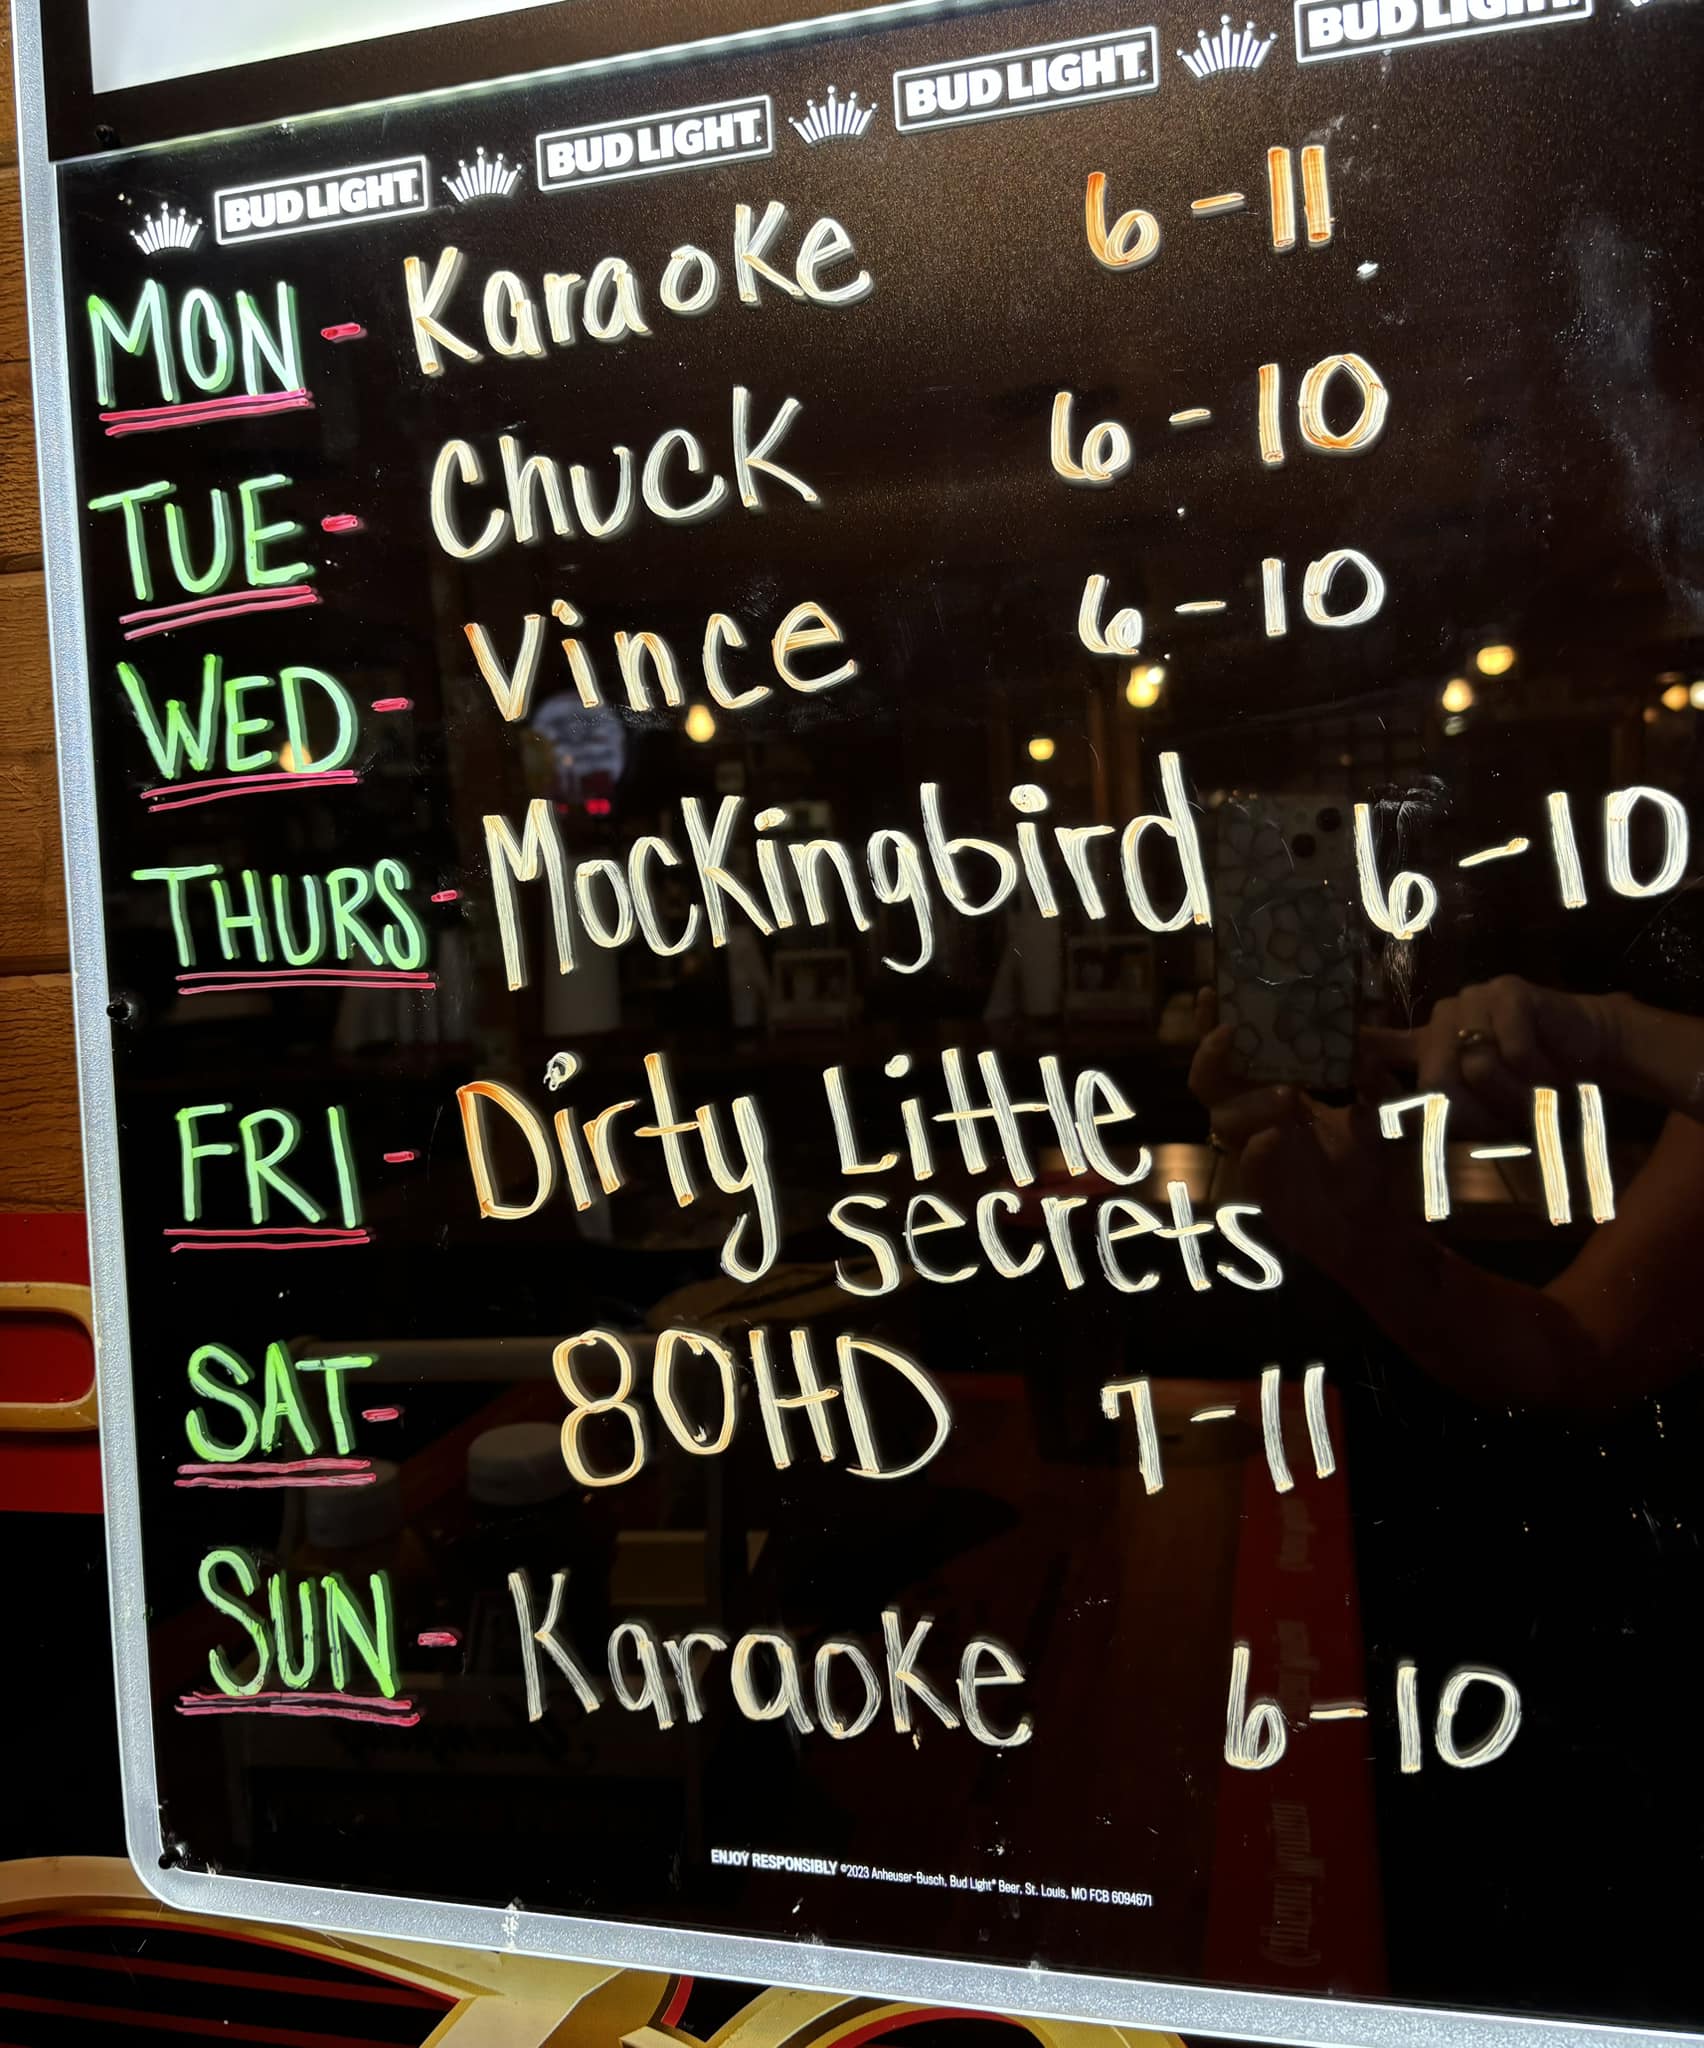 BUD LIGHT. BUD LIGHT. BUD LIGHT. BUD LIGHT.
MON - Karaoke 6-11
TUE - Chuck 6-10
WED - Vince 6-10
THURS - Mockingbird 6-10
FRI - Dirty Little 7-11
secrets
SAT - 80HD 7-11
SUN - Karaoke 6-10
ENJOY RESPONSIBLY ©2023 Anheuser-Busch, Bud Light® Beer, St. Louis, MO FCB 6094671